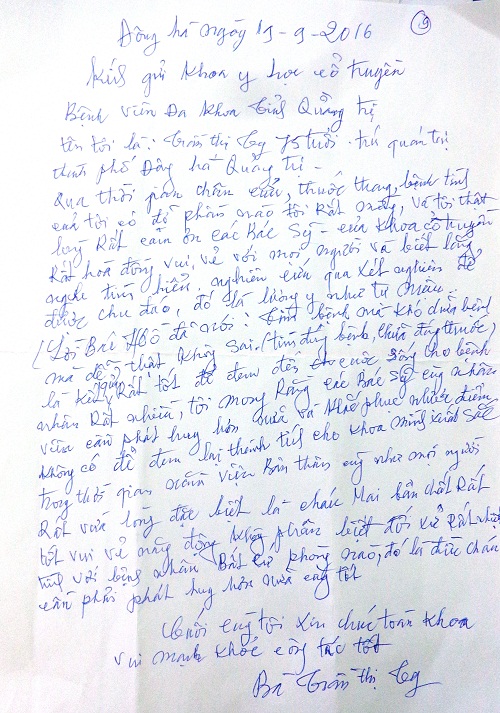 9
Đông hà ngày 19-9-2016
Kính gửi Khoa y học cổ truyền
Bệnh viện Đa Khoa tỉnh Quảng trị
tên tôi là: trần thị Cg 75 tuổi trú quán tại
thành phố Đông hà Quảng trị
Qua thời gian châm cứu, thuốc thang, bệnh tình
của tôi có đỡ phần nào tôi Rất mừng, và tôi thật
lòng Rất cảm ơn các Bác Sỹ - của Khoa cổ truyền
Rất hoà đồng vui vẻ với mọi người và biết lắng
nghe tìm hiểu nghiên cứu qua xét nghiệm để
được chu đáo, đó là lương y như từ mẫu
(Lời Bác Hồ đã nói: bệnh mà khó chữa bệnh
mà đều thật không sai (tìm đúng bệnh, chữa đúng thuốc)
là Kết quả Rất tốt để đem đến cuộc sống cho bệnh
nhân Rất nhiều, tôi mong Rằng các Bác Sỹ cg nhân
viên cần phát huy hơn nữa và khắc phục nhược điểm
không có để đem lại thành tích cho khoa mình xuất Sắc
trong thời gian nằm viện Bản thân cg như mọi người
Rất vừa lòng đặc biệt là cháu Mai bản chất Rất
tốt vui vẻ năng động không phân biệt đối xử Rất nhiệt
tình với bệnh nhân Bất cứ phòng nào, đó là đức
cần phải phát huy hơn nữa cg tốt
Cuối cg tôi xin chúc toàn Khoa
vui mạnh khoẻ công tác tốt
Bà trần thị Cg